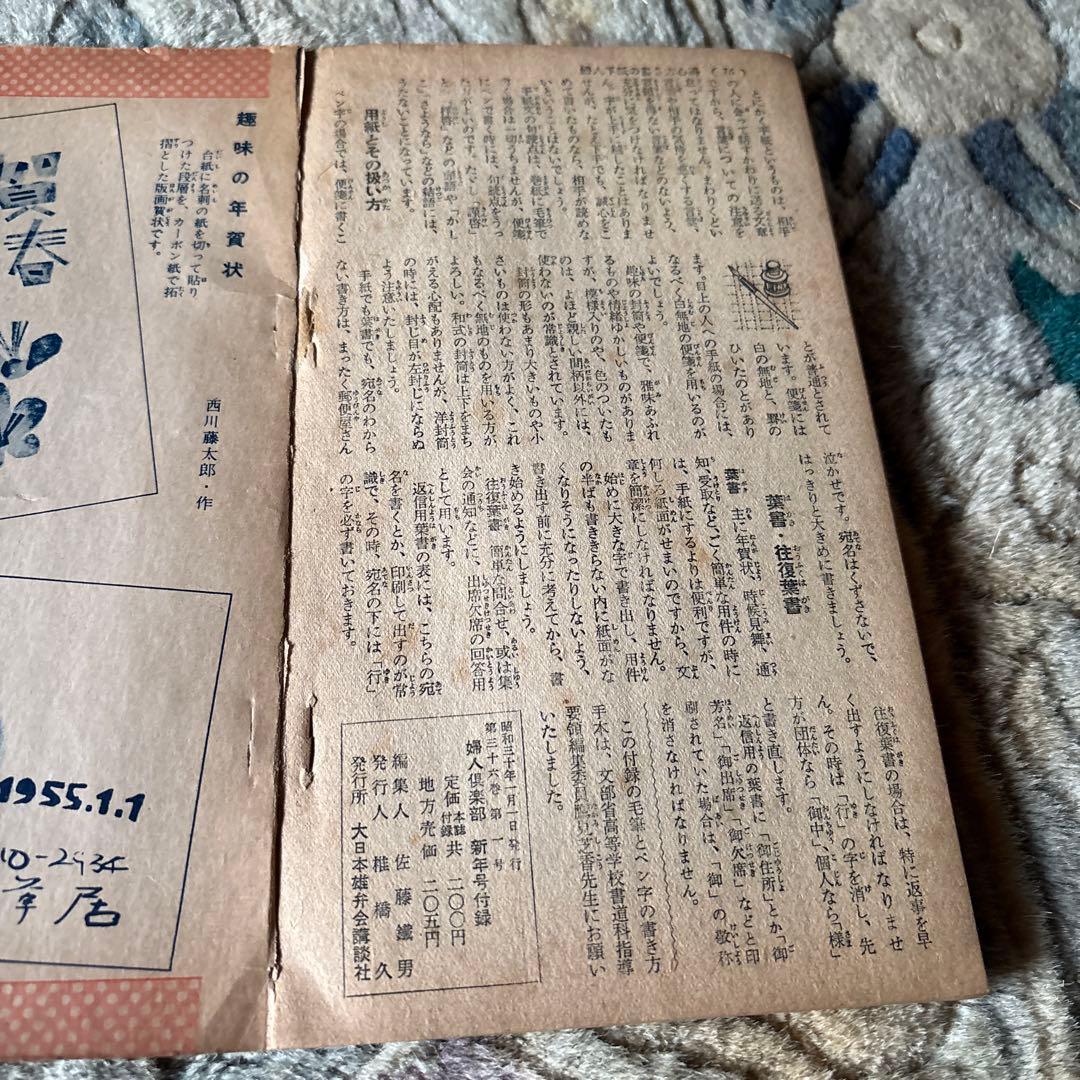 とにかく手紙というものは、相手
の人に会って話すかわりに送る文章
ですから、言葉についての注意を
怠ってはなりません。まわりくどい
言方や相手の気持を悪くする言葉、
ん。字が上手に越したことはありま
せんが、たとえ下手でも、誠心をこ
めて書いたものなら、相手が読めな
いということはないでしょう。
手紙文の句読点は、巻紙に毛筆で
書く場合は一切うちませんが、便箋
にペンで書く時には、句読点をうっ
た方がよいのです。ただし「謹啓」
とか「拝啓」などの頭語や「かし
こ」「さようなら」などの結語には、
うたないことになっています。
用紙とその扱い方
ペン字の場合では、便箋に書くこ
とが普通とされて
います。便箋には
白の無地と、罫の
ひいたのとがあり
ます。目上の人への手紙の場合には、
なるべく白無地の便箋を用いるのが
よいでしょう。
趣味の封筒や便箋で、雅味あふれ
るものや情緒ゆかしいものがありま
すが、模様入りのや、色のついたも
のは、よほど親しい間柄以外には、
使わないのが常識とされています。
封筒の形もあまり大きいものや小
さいものは使わない方がよく、これ
もなるべく無地のものを用いる方が
よろしい。和式の封筒は上下をまち
がえる心配もありませんが、洋封筒
の時には、封じ目が左封じにならぬ
よう注意いたしましょう。
手紙でも葉書でも、宛名のわから
ない書き方は、まったく郵便屋さん
泣かせです。宛名はくずさないで、
はっきりと大きめに書きましょう。
葉書・往復葉書
葉書　主に年賀状、時候見舞、通
知、受取など、ごく簡単な用件の時に
は、手紙にするよりは便利ですが、
何しろ紙面がせまいのですから、文
章を簡潔にしなければなりません。
始めに大きな字で書き出し、用件
の半ばも書ききらない内に紙面がな
くなりそうになったりしないよう、
書き出す前に充分に考えてから、書
き始めるようにしましょう。
往復葉書　簡単な問合せ、或は集
会の通知などに、出席欠席の回答用
として用います。
返信用葉書の表には、こちらの宛
名を書くとか、印刷して出すのが常
識で、その時、宛名の下には「行」
の字を必ず書いておきます。
往復葉書の場合は、特に返事を早
く出すようにしなければなりませ
ん。その時は「行」の字を消し、先
方が団体なら「御中」、個人なら「様」
と書き直します。
返信用の葉書に「御住所」とか「御
芳名」「御出席」「御欠席」などと印
刷されていた場合は、「御」の敬称
を消さなければなりません。
この付録の毛筆とペン字の書き方
手本は、文部省高等学校書道科指導
いたしました。
昭和三十年一月一日発行
第三十六巻 第一号
婦人倶楽部 新年号付録
定価 本誌付録共 二〇〇円
地方売価 二〇五円
編集人 佐藤鐵男
発行人 椎橋久
発行所 大日本雄弁会講談社
趣味の年賀状
台紙に名刺の紙を切って貼り
つけた段層を、カーボン紙で拓
摺とした版画賀状です。
西川藤太郎・作
賀春
1955.1.1
10-2934
草居